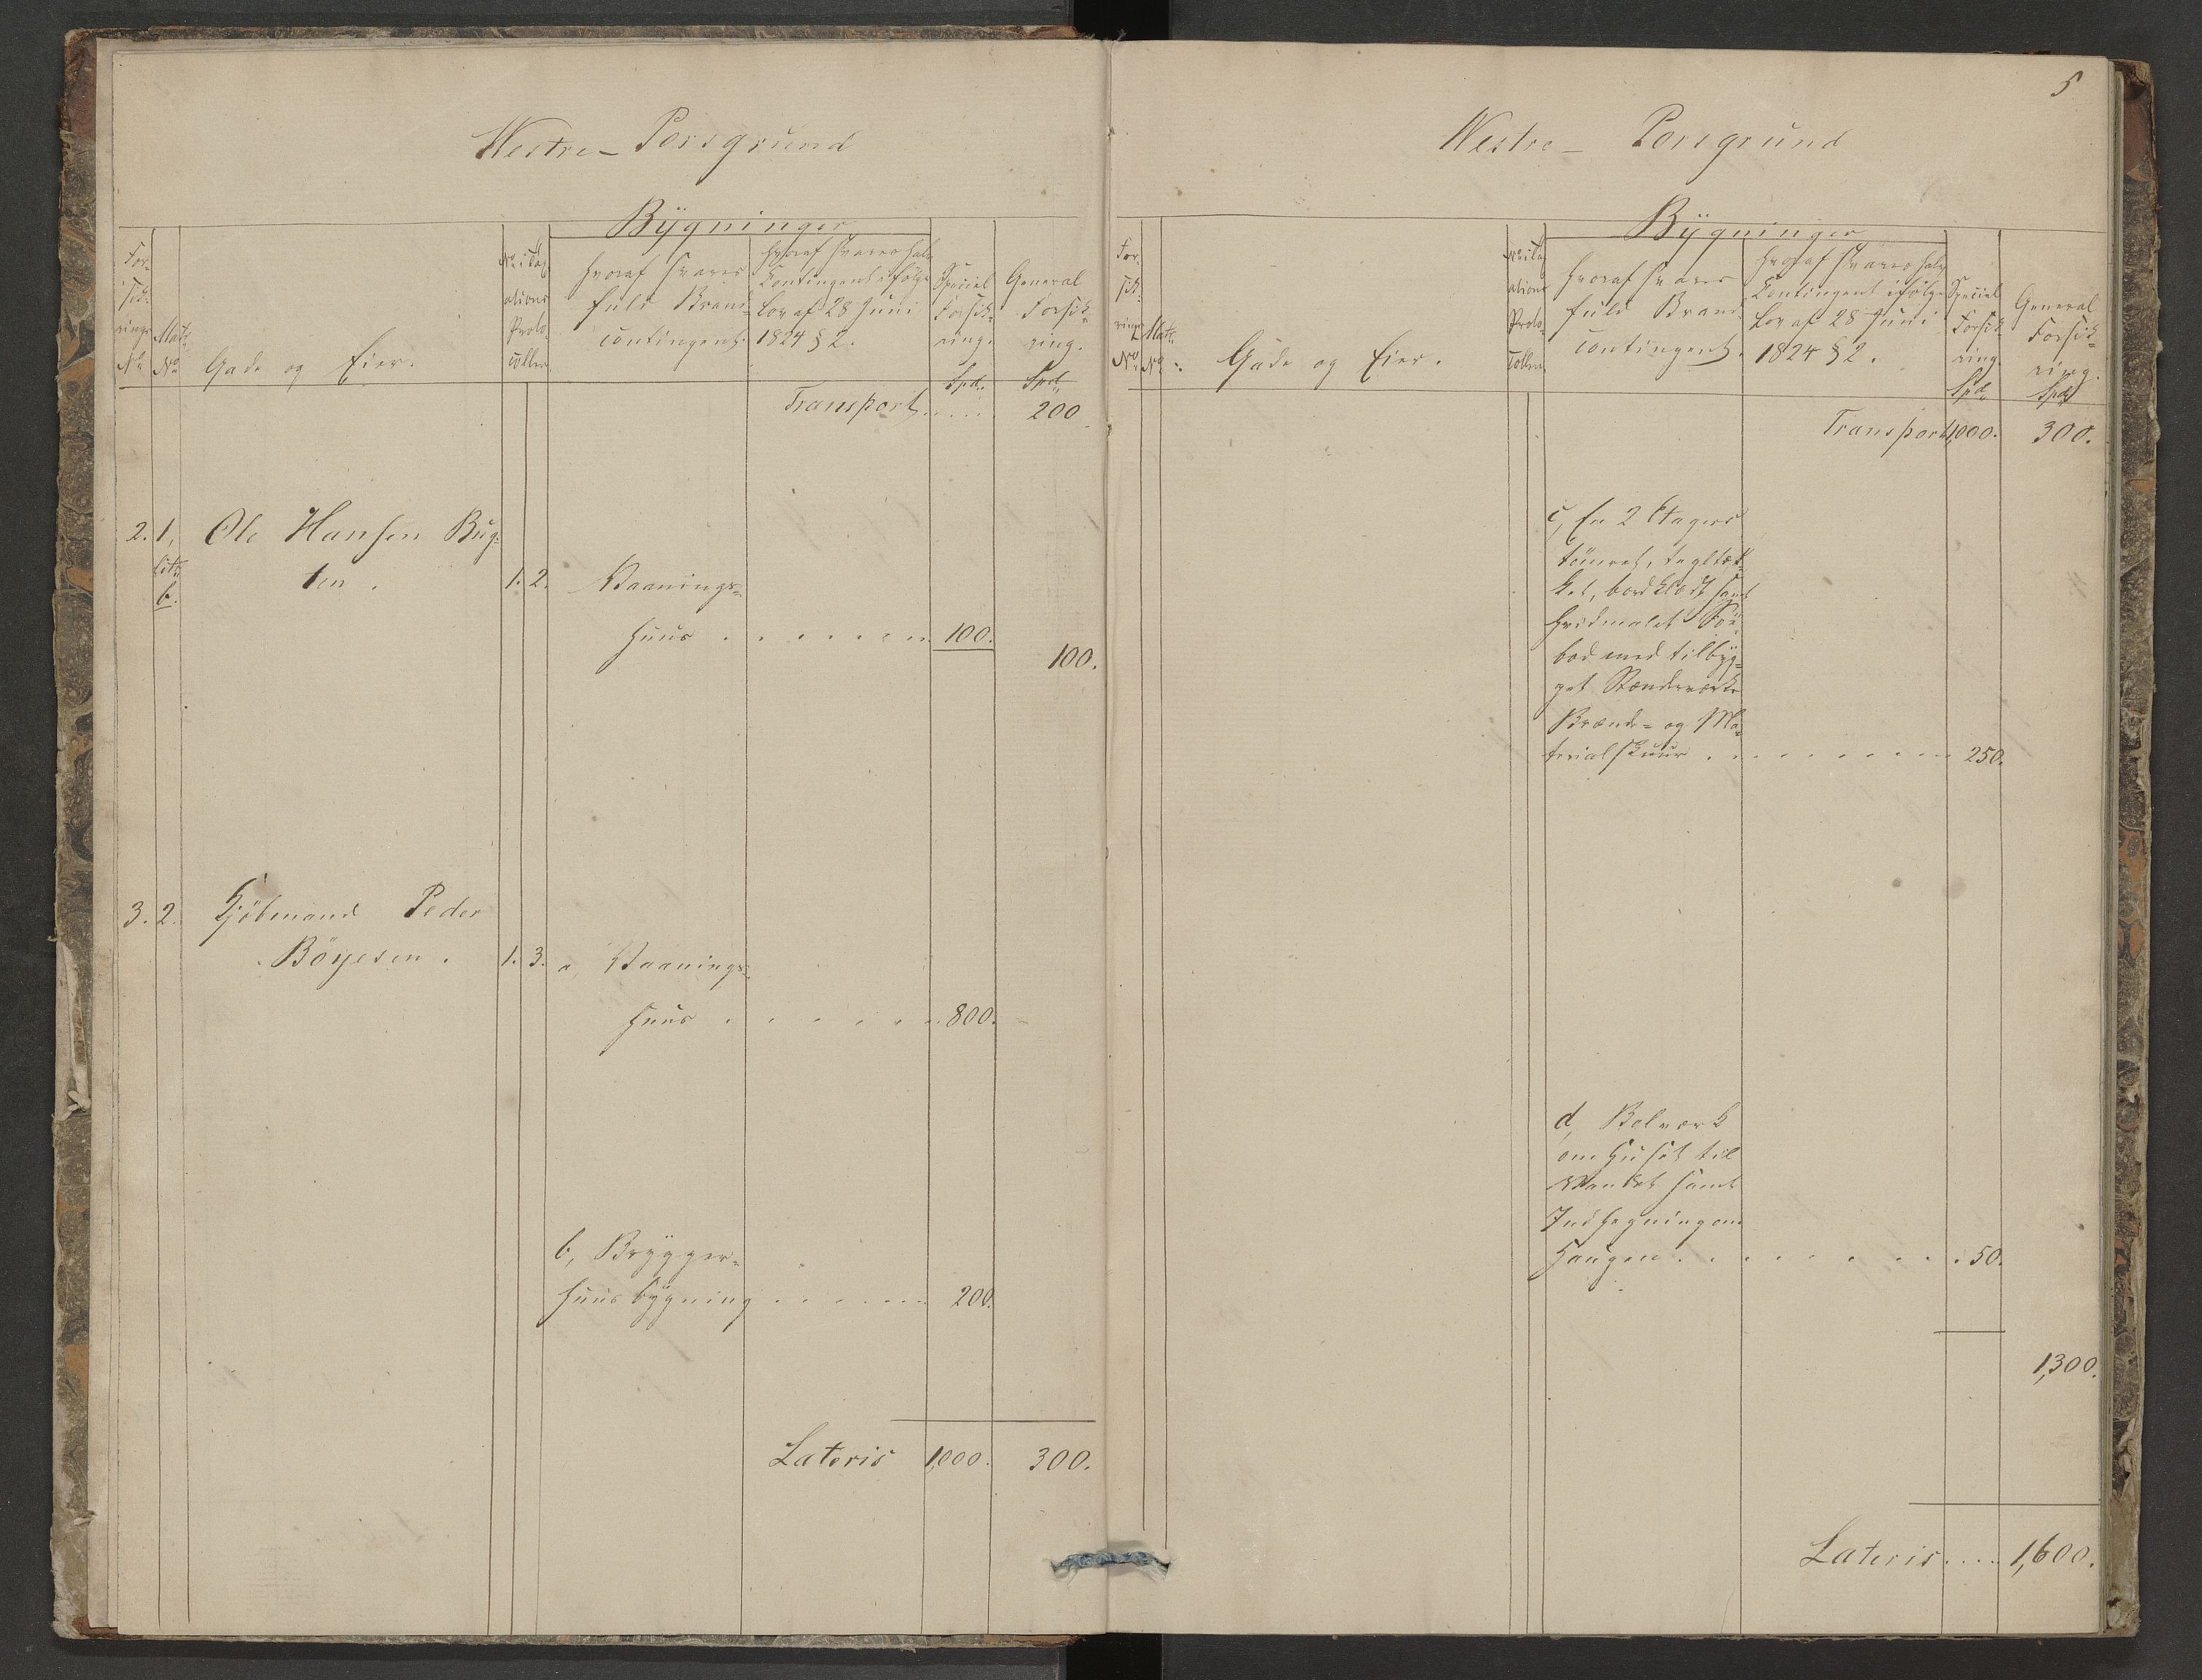 Westre- Porsgrund
Bygninger
For-
sik-
rings
No
Matr.
No
Gade og Eier.
No i Tax
ations
Proto-
collen
hvoraf svares
fuld Brand-
contingent.
hvoraf svares halv
Contingent ifølge
Lov af 28 Juni
1824 § 2.
Special
Forsik-
ring.
Spd.
General
Forsik-
ring.
Spd.
Transport . . . . . 200
2. 1, Ole Hansen Bug-
Litr.
b. ten . 1. 2. Vaanings-
huus . . . . . . . . 100.
100.
3. 2. Kjöbmand Peder
Böyesen . 1. 3. a, Vaanings-
huus . . . . . . . 800. -
b, Brygger-
huusbygning . . . . . . 200.
Lateris 1,000. 300.
5
Westre- Porsgrund
Bygninger
For-
sik-
rings
No
Matr.
No
Gade og Eier.
No i Tax
ations
Proto-
collen
hvoraf svares
fuld Brand-
contingent.
hvoraf svares halv
Contingent ifølge
Lov af 28 Juni
1824 § 2.
Special
Forsik-
ring.
Spd.
General
Forsik-
ring.
Spd.
Transport 1,000. 300.
c, En 2 Etagers
tömret, tagltæk-
ket, bordklædt samt
hvidmalet Söe-
bod med tilbyg-
get Stænderværks
Brænde- og Ma-
terialskuur . . . . . . . . 250.
d, Bolværk
om Huset til
Vandet samt
Indhegning om
Haugen . . . . . . . . 50.
1,300.
Lateris . . . . 1,600.